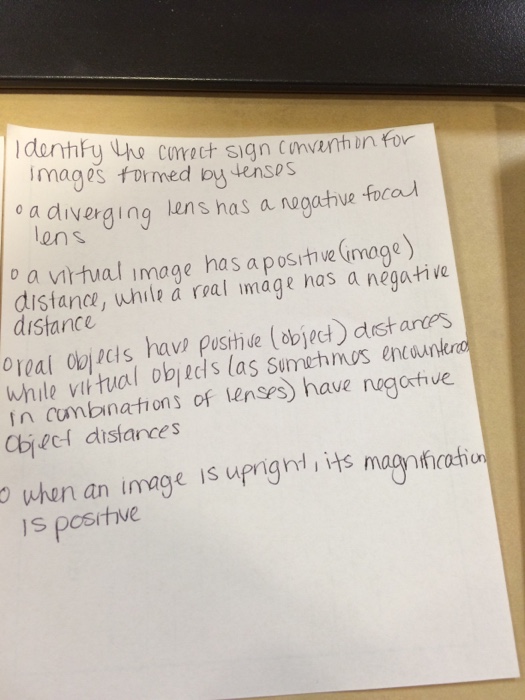 Identify the correct sign convention for
images formed by lenses
o a diverging lens has a negative focal
lens
o a virtual image has a positive (image)
distance, while a real image has a negative
distance
o real objects have positive (object) distances
while virtual objects (as sometimes encountered
in combinations of lenses) have negative
object distances
o when an image is upright, its magnification
is positive